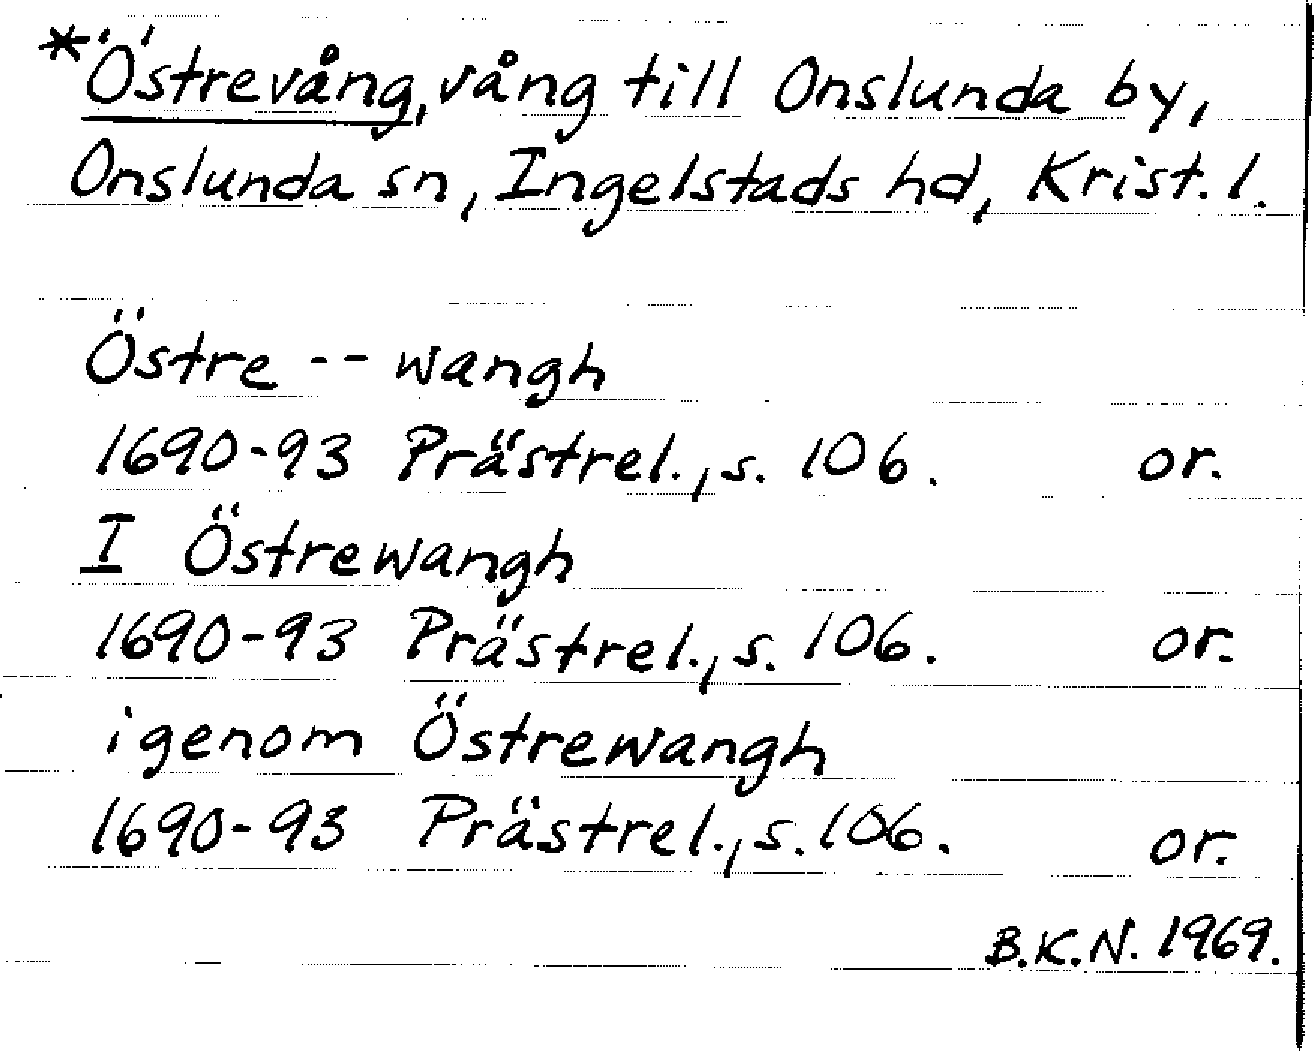 *Östrevång, vång till Onslunda by,
Onslunda sn, Ingelstads hd, Krist. l.
Östre -- wangh
1690-93 Prästrel., s. 106. or.
I Östrewangh
1690-93 Prästrel., s. 106. or.
igenom Östrewangh
1690-93 Prästrel., s. 106. or.
B.K.N. 1969.